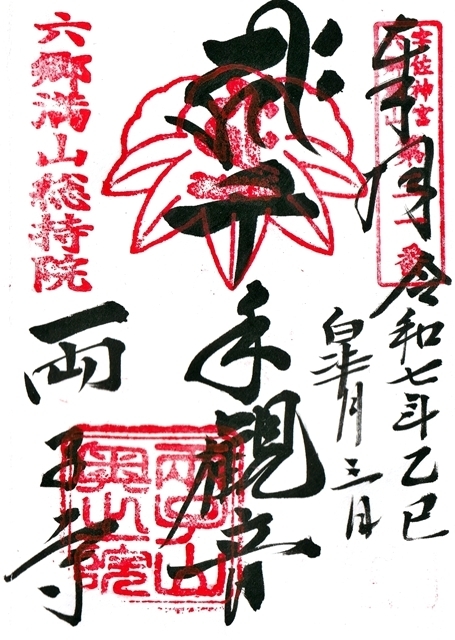 奉拝
宇佐神宮
令和七年乙巳
皐月三日
千手観音
両子山
奥之院
六郷満山総持院
両子寺